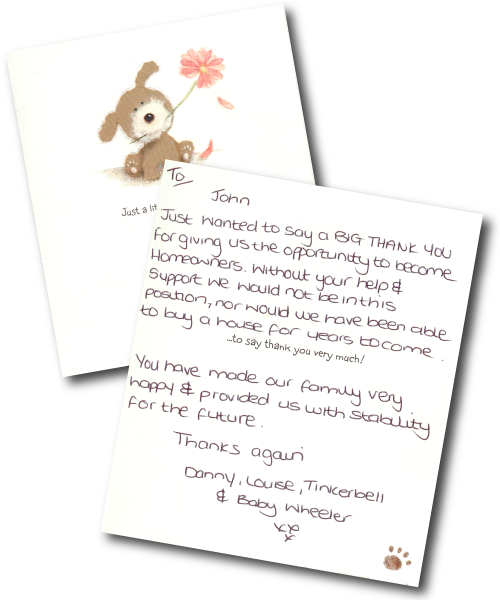 Just a lit
To
John
Just wanted to say a BIG THANK YOU
for giving us the opportunity to become
Homeowners. Without your help &
Support we would not be in this
position, nor would we have been able
to buy a house for years to come.
...to say thank you very much!
You have made our family very
happy & provided us with stability
for the future.
Thanks again
Danny, Louise, Tinkerbell
& Baby Wheeler
xxx